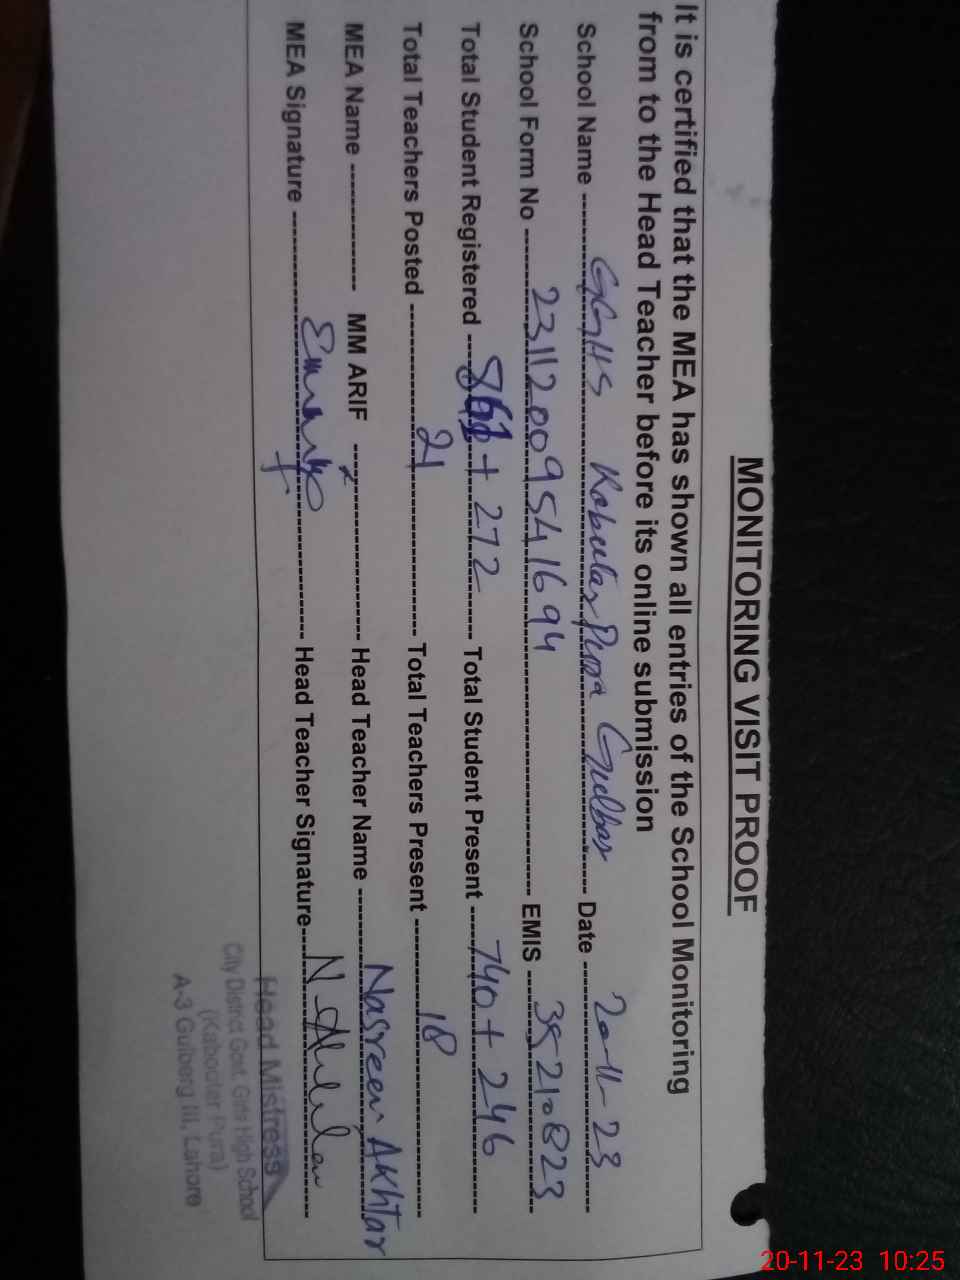 MONITORING VISIT PROOF
It is certified that the MEA has shown all entries of the School Monitoring
from to the Head Teacher before its online submission
School Name GGHS Kabutar Pura Gulbar Date 20-11-23
School Form No 2311200954 1694 EMIS 35210823
Total Student Registered 861 + 272 Total Student Present 740 + 246
Total Teachers Posted 21 Total Teachers Present 18
MEA Name MM ARIF Head Teacher Name Nasreen Akhtar
MEA Signature Head Teacher Signature
Head Mistress
City District Govt. Girls High School
(Kabooter Pura)
A-3 Gulberg III, Lahore
20-11-23 10:25